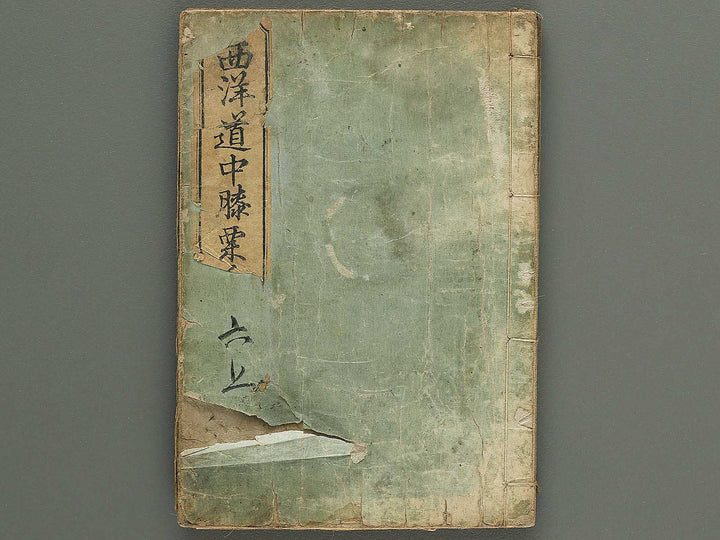 西洋道中膝栗
六上